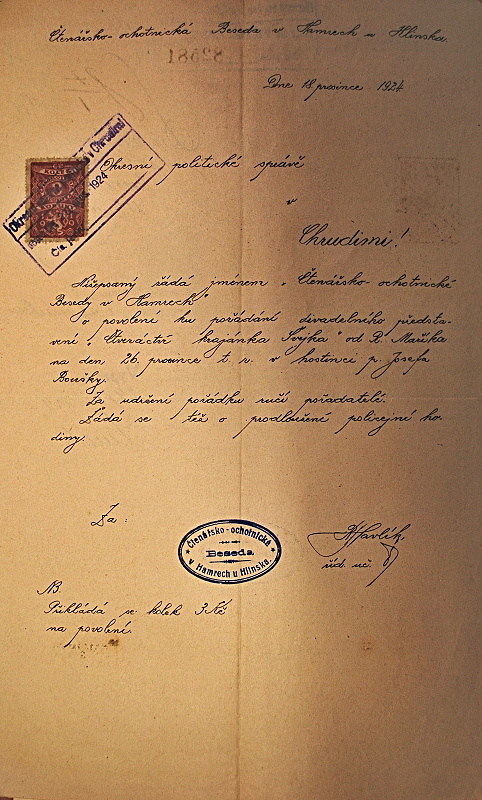 Čtenářsko-ochotnická Beseda v Hamrech u Hlinska
82581
Dne 18 prosince 1924
Okresní politické správě
v
Chrudimi!
v Chrudimi
1924
Čís.
Nížepsaný žádá jménem „Čtenářsko-ochotnické
Besedy v Hamrech"
o povolení ku pořádání divadelního předsta-
vení „Čtveractví krajánka Švejka" od R. Maříka
na den 26. prosince t. r. v hostinci p. Josefa
Boušky.
Za udržení pořádku ručí pořadatelé.
Žádá se též o prodloužení policejní ho-
diny.
Za:
Čtenářsko-ochotnická
Beseda
v Hamrech u Hlinska.
Havlík.
říd. uč.
NB.
Přikládá se kolek 3 Kč
na povolení.